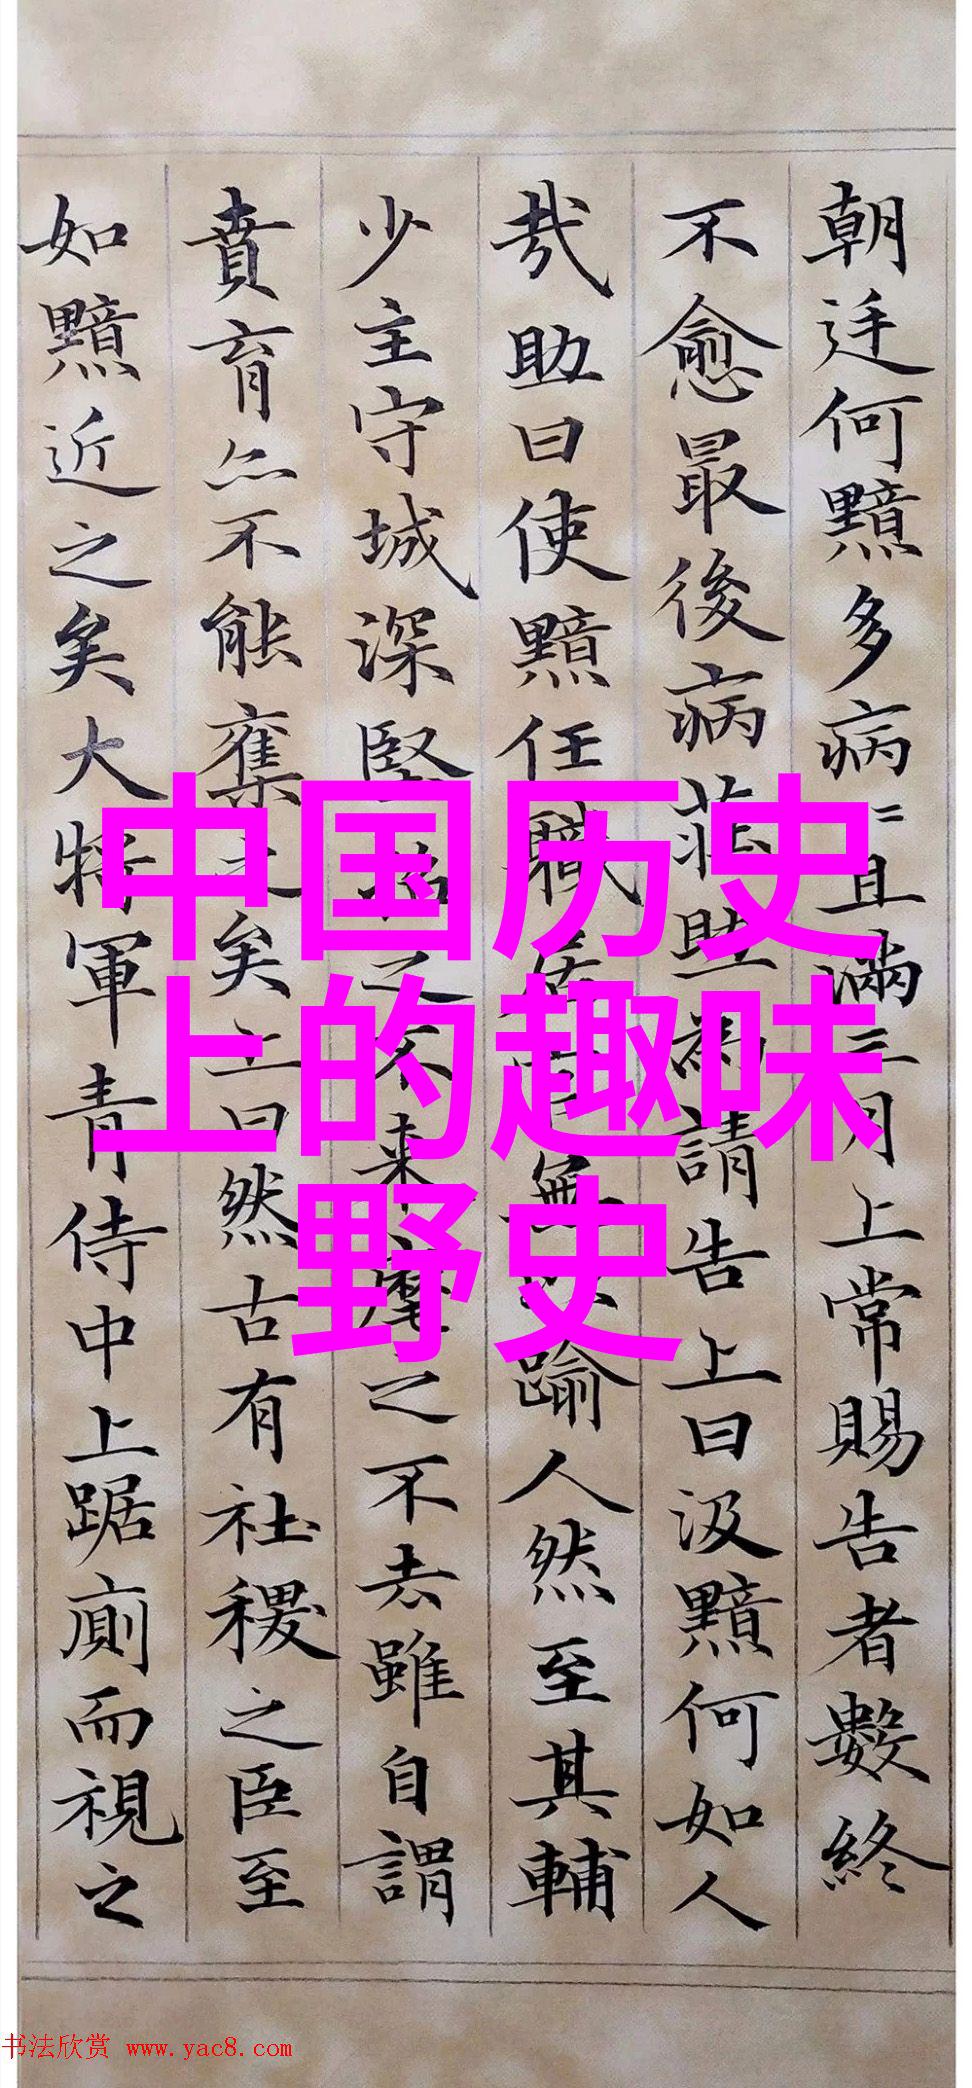 中国历史
上的趣味
野史
朝廷何黯多病〻且滿三月上常賜告者數終
不愈最後病莊助為請告上曰汲黯何如人
哉助曰使黯任職居無以踰人然至其輔
少主守城深堅招之不來麾之不去雖自謂
賁育亦不能奪之矣上曰然古有社稷之臣至
如黯近之矣大將軍青侍中上踞廁而視之
书法欣赏 www.yac8.com